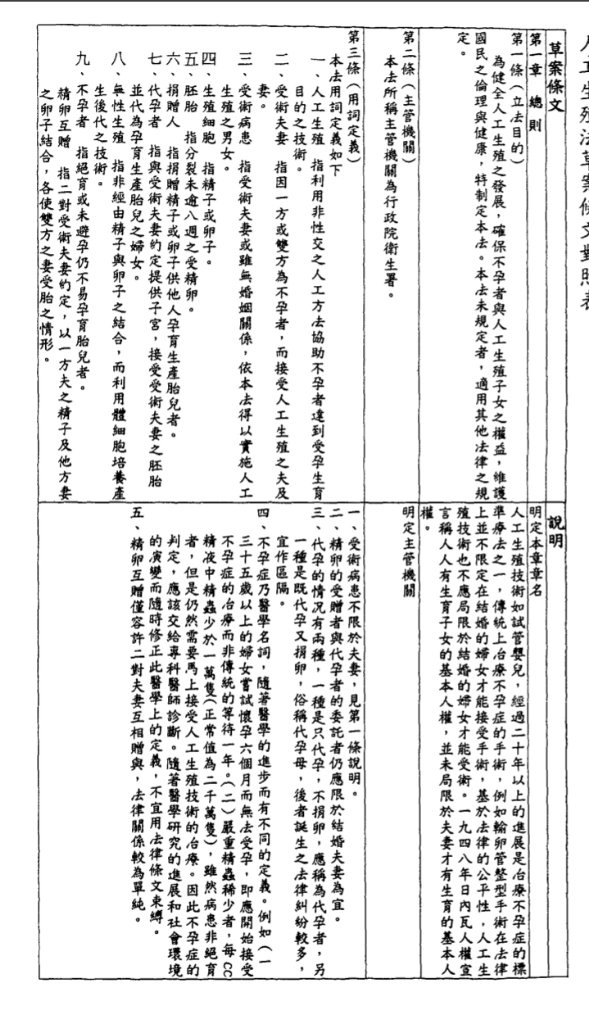 人工生殖法草案條文對照表
草案條文
第一章 總則
第一條(立法目的)
為健全人工生殖之發展，確保不孕者與人工生殖子女之權益，維護
國民之倫理與健康，特制定本法。本法未規定者，適用其他法律之規
定。
第二條(主管機關)
本法所稱主管機關為行政院衛生署。
第三條(用詞定義)
本法用詞定義如下
一、人工生殖 指利用非性交之人工方法協助不孕者達到受孕生育
目的之技術。
二、受術夫妻 指因一方或雙方為不孕者，而接受人工生殖之夫及
妻。
三、受術病患 指受術夫妻或雖無婚姻關係，依本法得以實施人工
生殖之男女。
四、生殖細胞 指精子或卵子。
五、胚胎 指分裂未逾八週之受精卵。
六、捐贈人 指捐贈精子或卵子供他人孕育生產胎兒者。
七、代孕者 指與受術夫妻約定提供子宮，接受受術夫妻之胚胎
並代為孕育生產胎兒之婦女。
八、無性生殖 指非經由精子與卵子之結合，而利用體細胞培養產
生後代之技術。
九、不孕者 指絕育或未避孕仍不易孕育胎兒者。
精卵互贈 指二對受術夫妻約定，以一方夫之精子及他方妻
之卵子結合，各使雙方之妻受胎之情形。
說明
明定本章章名
人工生殖技術如試管嬰兒，經過二十年以上的進展是治療不孕症的標
準療法之一，傳統上治療不孕症的手術，例如輸卵管整型手術在法律
上並不限定在結婚的婦女才能接受手術，基於法律的公平性，人工生
殖技術也不應局限於結婚的婦女才能受術。一九四八年日內瓦人權宣
言稱人人有生育子女的基本人權，並未局限於夫妻才有生育的基本人
權。
明定主管機關
一、受術病患不限於夫妻，見第一條說明。
二、精卵的受贈者與代孕者的委託者仍應限於結婚夫妻為宜。
三、代孕的情況有兩種，一種是只代孕，不捐卵，應稱為代孕者，另
一種是既代孕又捐卵，俗稱代孕母，後者誕生之法律糾紛較多，
宜作區隔。
四、不孕症乃醫學名詞，隨著醫學的進步而有不同的定義。例如(一)
三十五歲以上的婦女嘗試懷孕六個月而無法受孕，即應開始接受
不孕症的治療而非傳統的等待一年。(二)嚴重精蟲稀少者，每CC
精液中精蟲少於一萬隻(正常值為二千萬隻)，雖然病患非絕育
者，但是仍然需要馬上接受人工生殖技術的治療。因此不孕症的
判定，應該交給專科醫師診斷。隨著醫學研究的進展和社會環境
的演變而隨時修正此醫學上的定義，不宜用法律條文束縛。
五、精卵互贈僅容許二對夫妻互相贈與，法律關係較為單純。